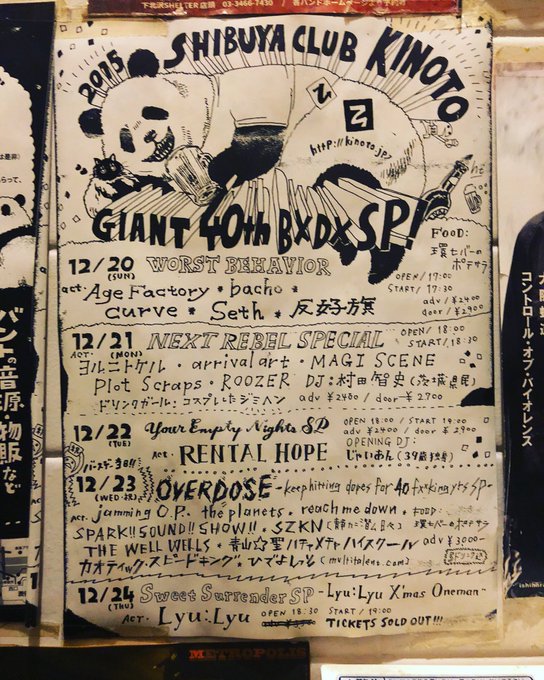 下北沢SHELTER店頭 03-3466-7430 / 各バンドホームページより予約可
2015 SHIBUYA CLUB KINOTO
乙
http://kinoto.jp/
GIANT 40th BXDX SP!
FOOD:
環七バーの
ポテサラ
12/20 (SUN) WORST BEHAVIOR
OPEN/19:00
START/19:30
act: Age Factory * bacho *
curve * Seth * 反好旗
adv/¥2400
door/¥2900
12/21 (MON) NEXT REBEL SPECIAL
OPEN/18:00
START/18:30
ACT. ヨルニトケル・arrival art・MAGI SCENE
Plot Scraps・ROOZER DJ:村田智史(茨城県民)
ドリンクガール:コスプレしたジミヘン adv ¥2400/door ¥2700
12/22 (TUE) Your Empty Nights SP
OPEN 18:00 / START 19:00
adv ¥2400 / door ¥2900
Act・RENTAL HOPE
OPENING DJ:
じゃいあん(39歳独身)
バースデー当日!!
12/23 (WED・祝) OVERDOSE -keep hitting dopes for 40 fx*king yrs SP-
ACT. jamming O.P. the planets・reach me down・
FOOD:
SPARK!!SOUND!!SHOW!!・SZKN
環七バーのポテサラ
THE WELL WELLS・青山☆聖ハチャメチャハイスクール adv ¥3000-
カオティック・スピードキング・ひでよしっと(multitalent.com)
12/24 (THU) Sweet Surrender SP -Lyu:Lyu X'mas Oneman-
ACT・Lyu:Lyu
OPEN 18:30 START/19:00
TICKETS SOLD OUT!!!
バンドの音源・物販など
コントロール・オブ・バイオレンス
METROPOLIS